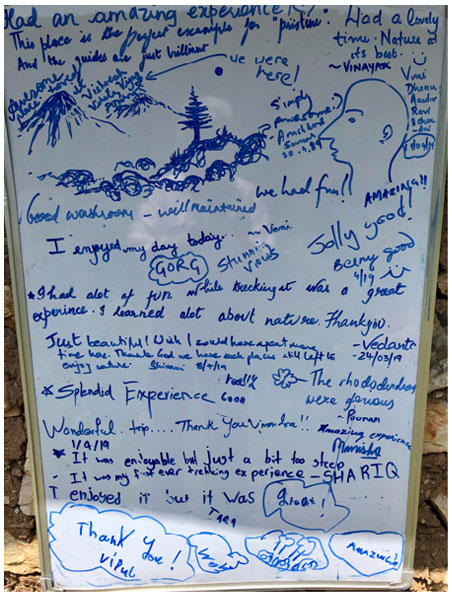 Had an amazing experience!!
This place is the perfect example for "pristine".
And the guides are just brilliant
Had a lovely
time. Nature at
its best.
~ VINAYAK
we were
here!
Awesome
place
Simply
awesome.
we had fun!!
AMAZING!!
Good washroom - well maintained
Jolly good!
I enjoyed my day today... ~ Vani
GORG
Stunning
views
Being good
4/19
* I had alot of fun while trecking it was a great
experince. I learned alot about nature. Thankyou.
- Vedant
- 24/03/19
Just beautiful! Wish I could have spent more
time here. Thank God we have such places still left to
enjoy nature. Shivani 8/4/19
The rhododendrons
were glorious
~ Poonam
* Splendid Experience
Amazing experience
Manisha
Wonderful trip.... Thank You
1/4/19
* It was enjoyable but just a bit too steep
It was my first ever trekking experience - SHARIQ
I enjoyed it but it was Great!
Thank
you!
Vipul
Amazing!